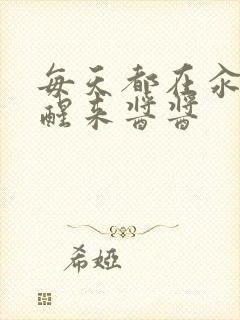 每天都在汆
醒来酱酱
希婭